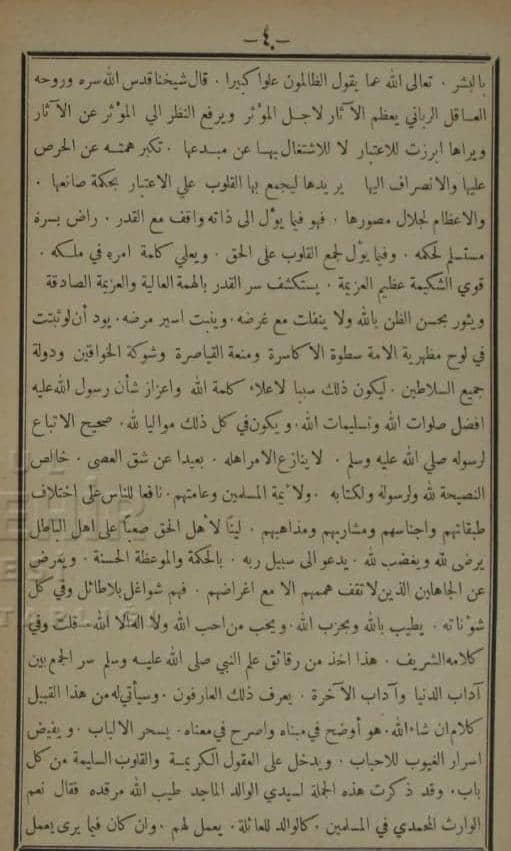 -٤٠-
بالبشر . تعالى الله عما يقول الظالمون علوا كبيرا . قال شيخنا قدس الله سره وروحه
العاقل الرباني يعظم الآثار لاجل المؤثر ويرفع النظر الى المؤثر عن الآثار
ويراها ابرزت للاعتبار لا للاشتغال بها عن مبدعها . تكبر همته عن الحرص
عليها والانصراف اليها يريدها ليجمع بها القلوب على الاعتبار بحكمة صانعها .
والاعظام لجلال مصورها . فهو فيما يؤل الى ذاته واقف مع القدر . راض بسره
مستسلم لحكمه . وفيما يؤل لجمع القلوب على الحق . ويعلي كلمة امره في ملكه .
قوي الشكيمة عظيم العزيمة . يستكشف سر القدر بالهمة العالية والعزيمة الصادقة
ويثور بحسن الظن بالله ولا ينفلت مع غرضه . ويثبت اسير مرضه . يود أن لو ثبتت
في لوح مظهرية الامة سطوة الاكاسرة ومنعة القياصرة وشوكة الخواقين ودولة
جميع السلاطين . ليكون ذلك سببا لاعلاء كلمة الله واعزاز شأن رسول الله عليه
افضل صلوات الله وتسليمات الله . ويكون في كل ذلك مواليا لله . صحيح الاتباع
لرسوله صلى الله عليه وسلم . لا ينازع الامر اهله . بعيدا عن شق العصى . خالص
النصيحة لله ولرسوله ولكتابه . ولائمة المسلمين وعامتهم . نافعا للناس على اختلاف
طبقاتهم واجناسهم ومشاربهم ومذاهبهم . لينا لأهل الحق صعبا على اهل الباطل
يرضى لله ويغضب لله . يدعو الى سبيل ربه . بالحكمة والموعظة الحسنة . ويعرض
عن الجاهلين الذين لا تقف هممهم الا مع اغراضهم . فهم شواغل بلا طائل وفي كل
شؤناته . يطيب بالله وبحزب الله . ويحب من احب الله ولا اله الا الله . قلت وفي
كلامه الشريف . هذا اخذ من رقائق علم النبي صلى الله عليه وسلم سر الجمع بين
آداب الدنيا وآداب الآخرة . يعرف ذلك العارفون . وسيأتي له من هذا القبيل
كلام ان شاء الله . هو أوضح في مبناه واصرح في معناه . يسحر الالباب . ويفيض
اسرار الغيوب للاحباب . ويدخل على العقول الكريمة والقلوب السليمة من كل
باب . وقد ذكرت هذه الجملة لسيدي الوالد الماجد طيب الله مرقده فقال نعم
الوارث المحمدي في المسلمين . كالوالد للعائلة . يعمل لهم . وان كان فيما يرى يعمل